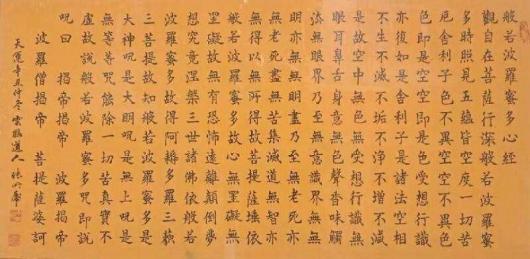 般若波羅蜜多心經
觀自在菩薩行深般若波羅蜜
多時照見五蘊皆空度一切苦
厄舍利子色不異空空不異色
色即是空空即是色受想行識
亦復如是舍利子是諸法空相
不生不滅不垢不淨不增不減
是故空中無色無受想行識無
眼耳鼻舌身意無色聲香味觸
法無眼界乃至無意識界無無
明亦無無明盡乃至無老死亦
無老死盡無苦集滅道無智亦
無得以無所得故菩提薩埵依
般若波羅蜜多故心無罣礙無
罣礙故無有恐怖遠離顛倒夢
想究竟涅槃三世諸佛依般若
波羅蜜多故得阿耨多羅三藐
三菩提故知般若波羅蜜多是
大神咒是大明咒是無上咒是
無等等咒能除一切苦真實不
虛故說般若波羅蜜多咒即說
咒曰 揭帝揭帝 波羅揭帝
波羅僧揭帝 菩提薩婆訶
天運辛 仲冬 雲 道人